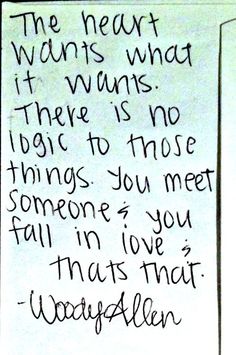 The heart
wants what
it wants.
There is no
logic to those
things. you meet
someone & you
fall in love &
thats that.
-Woody Allen